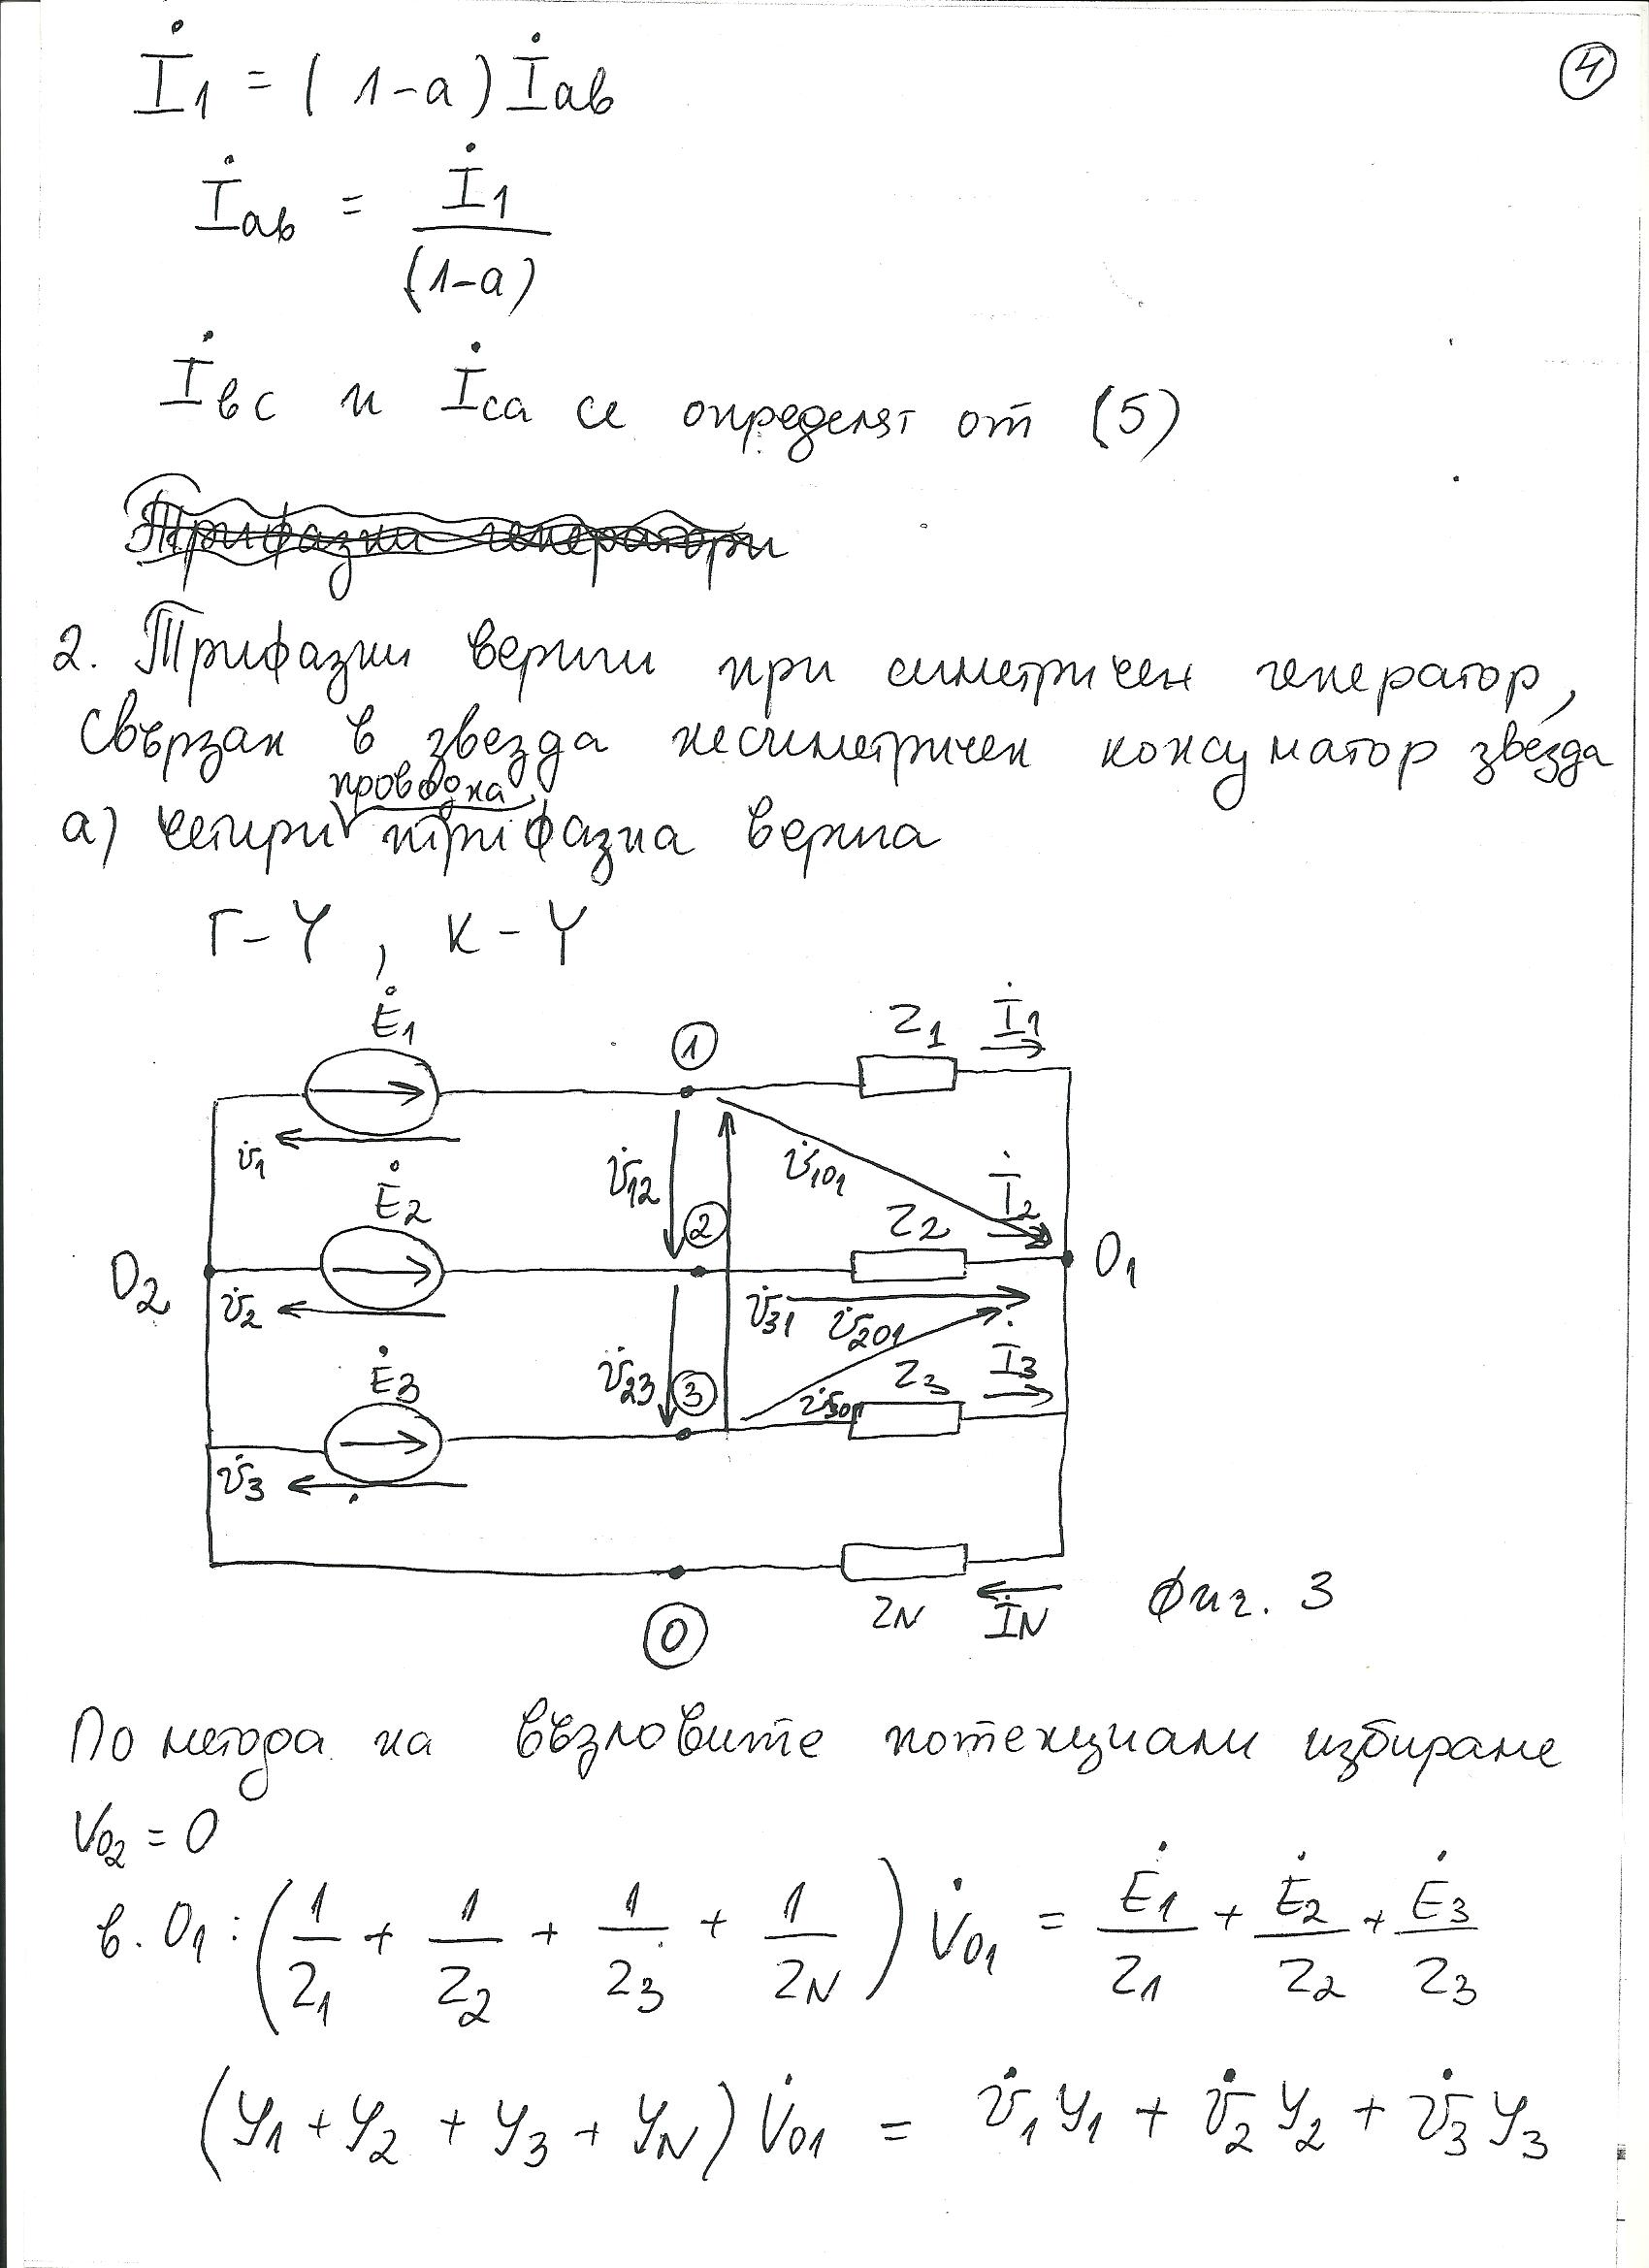 4
İ1 = (1-a) İab
İab = İ1 / (1-a)
İbc и İca се определят от (5)
Трифазни генератори
2. Трифазни вериги при симетричен генератор,
свързан в звезда несиметричен консуматор звезда
проводна
а) четири трифазна верига
Г-Y, К-Y
Ė1
1
Z1
İ1
U̇1
U̇12
U̇101
Ė2
2
Z2
İ2
O2
O1
U̇2
U̇31
U̇201
Ė3
U̇23
3
Z3
İ3
U̇301
U̇3
0
ZN
İN
Фиг. 3
По метода на възловите потенциали избираме
V02 = 0
в. O1: (1/Z1 + 1/Z2 + 1/Z3 + 1/ZN) V̇01 = Ė1/Z1 + Ė2/Z2 + Ė3/Z3
(Y1 + Y2 + Y3 + YN) V̇01 = U̇1Y1 + U̇2Y2 + U̇3Y3